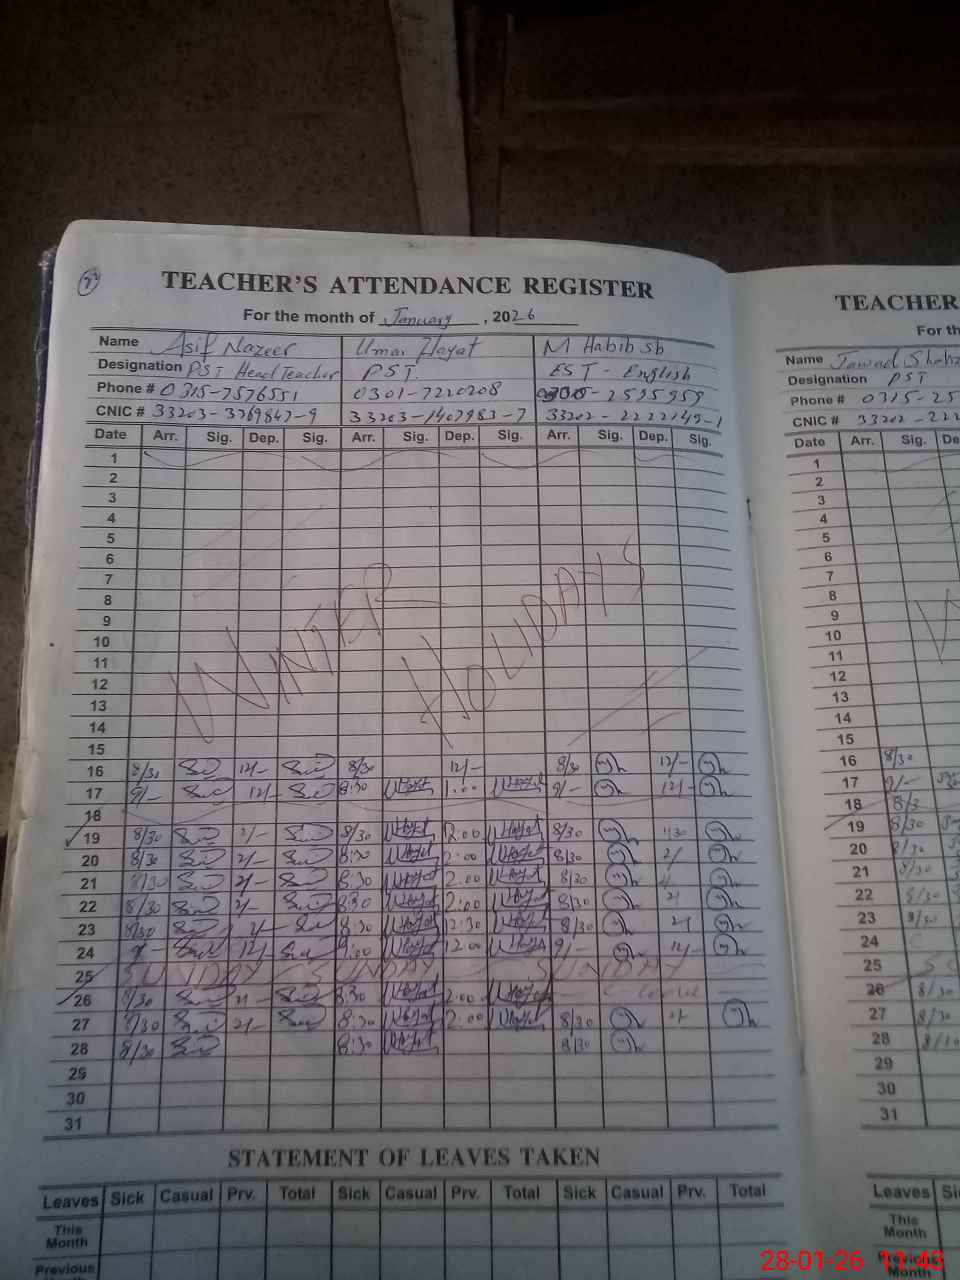 23
TEACHER'S ATTENDANCE REGISTER
For the month of January, 2026
Name Asif Nazeer Umar Hayat M Habib sb
Designation PST Head Teacher PST. EST - English
Phone # 0315-7576551 0301-7220208 2595959
CNIC # 33203-3769847-9 33203-1407983-7 33202-2222149-1
Date Arr. Sig. Dep. Sig. Arr. Sig. Dep. Sig. Arr. Sig. Dep. Sig.
1
2
3
4
5
6
7
8
9
10
11
12
13
14
15
WINTER HOLIDAYS
16 8/30 12/- 8/30 12/- 8/30 12/-
17 9/- 12/- 8:30 1:00 9/- 12/-
18
19 8/30 2/- 8/30 2:00 8/30 1/30
20 8/30 2/- 8:30 2:00 8/30 2/
21 8/30 2/- 8:30 2:00 8/30
22 8/30 2/- 8:30 2:00 8/30 2/
23 8/30 2/- 8:30 12:30 8/30 2/
24 9- 12/- 9:00 12:00 9/- 12/-
25 SUNDAY SUNDAY SUNDAY
26 8/30 2/- 8:30 2:00
27 8/30 2/- 8:30 2:00 8/30
28 8/30 8:30 8/30
29
30
31
STATEMENT OF LEAVES TAKEN
Leaves Sick Casual Prv. Total Sick Casual Prv. Total Sick Casual Prv. Total
This Month
Previous
TEACHER
For th
Name Jawad
Designation PST
Phone # 0315-25
CNIC # 33202-222
Date Arr. Sig. De
1
2
3
4
5
6
7
8
9
10
11
12
13
14
15
16 8/30
17 9/-
18 8/3
19 8/30
20 8/30
21 8/30
22 8/30
23 8/30
24
25
26 8/30
27 8/30
28 8/30
29
30
31
Leaves Si
This Month
Previous
28-01-26 11:43